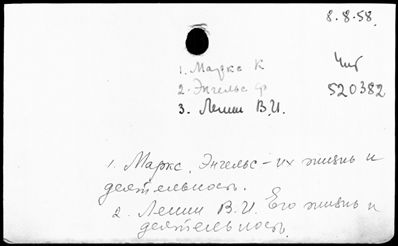 8.8.58.
1. Маркс К
Чит
2. Энгельс Ф
520382
3. Ленин В.И.
1. Маркс, Энгельс – их жизнь и
деятельность.
2. Ленин В.И. Его жизнь и
деятельность.